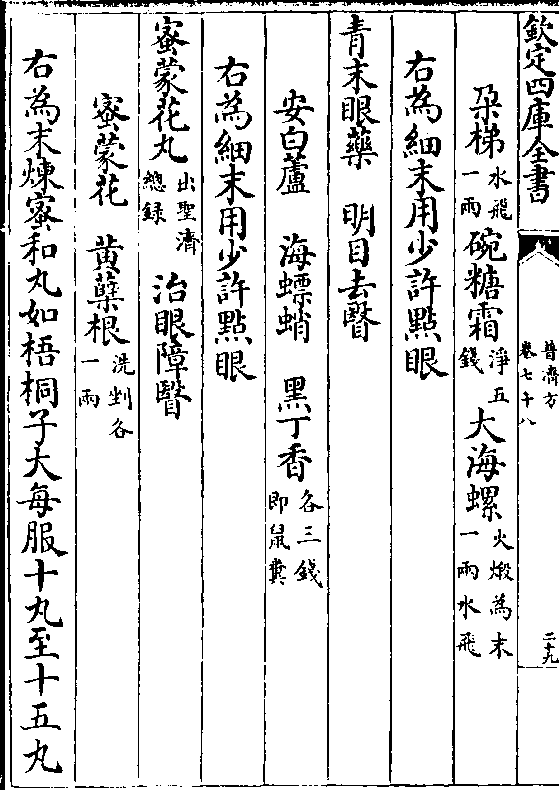 欽定四庫全書
普濟方
卷七十八
二十九
朶梯水飛一兩碗糖霜淨五錢大海螺火煅為末一兩水飛
右為細末用少許點眼
青末眼藥　明目去瞖
安白蘆　海螵蛸　黑丁香各三錢即鼠糞
右為細末用少許點眼
蜜蒙花丸出聖濟總録　治眼障瞖
蜜蒙花　黄蘗根洗剉各一兩
右為末煉蜜和丸如梧桐子大每服十丸至十五丸